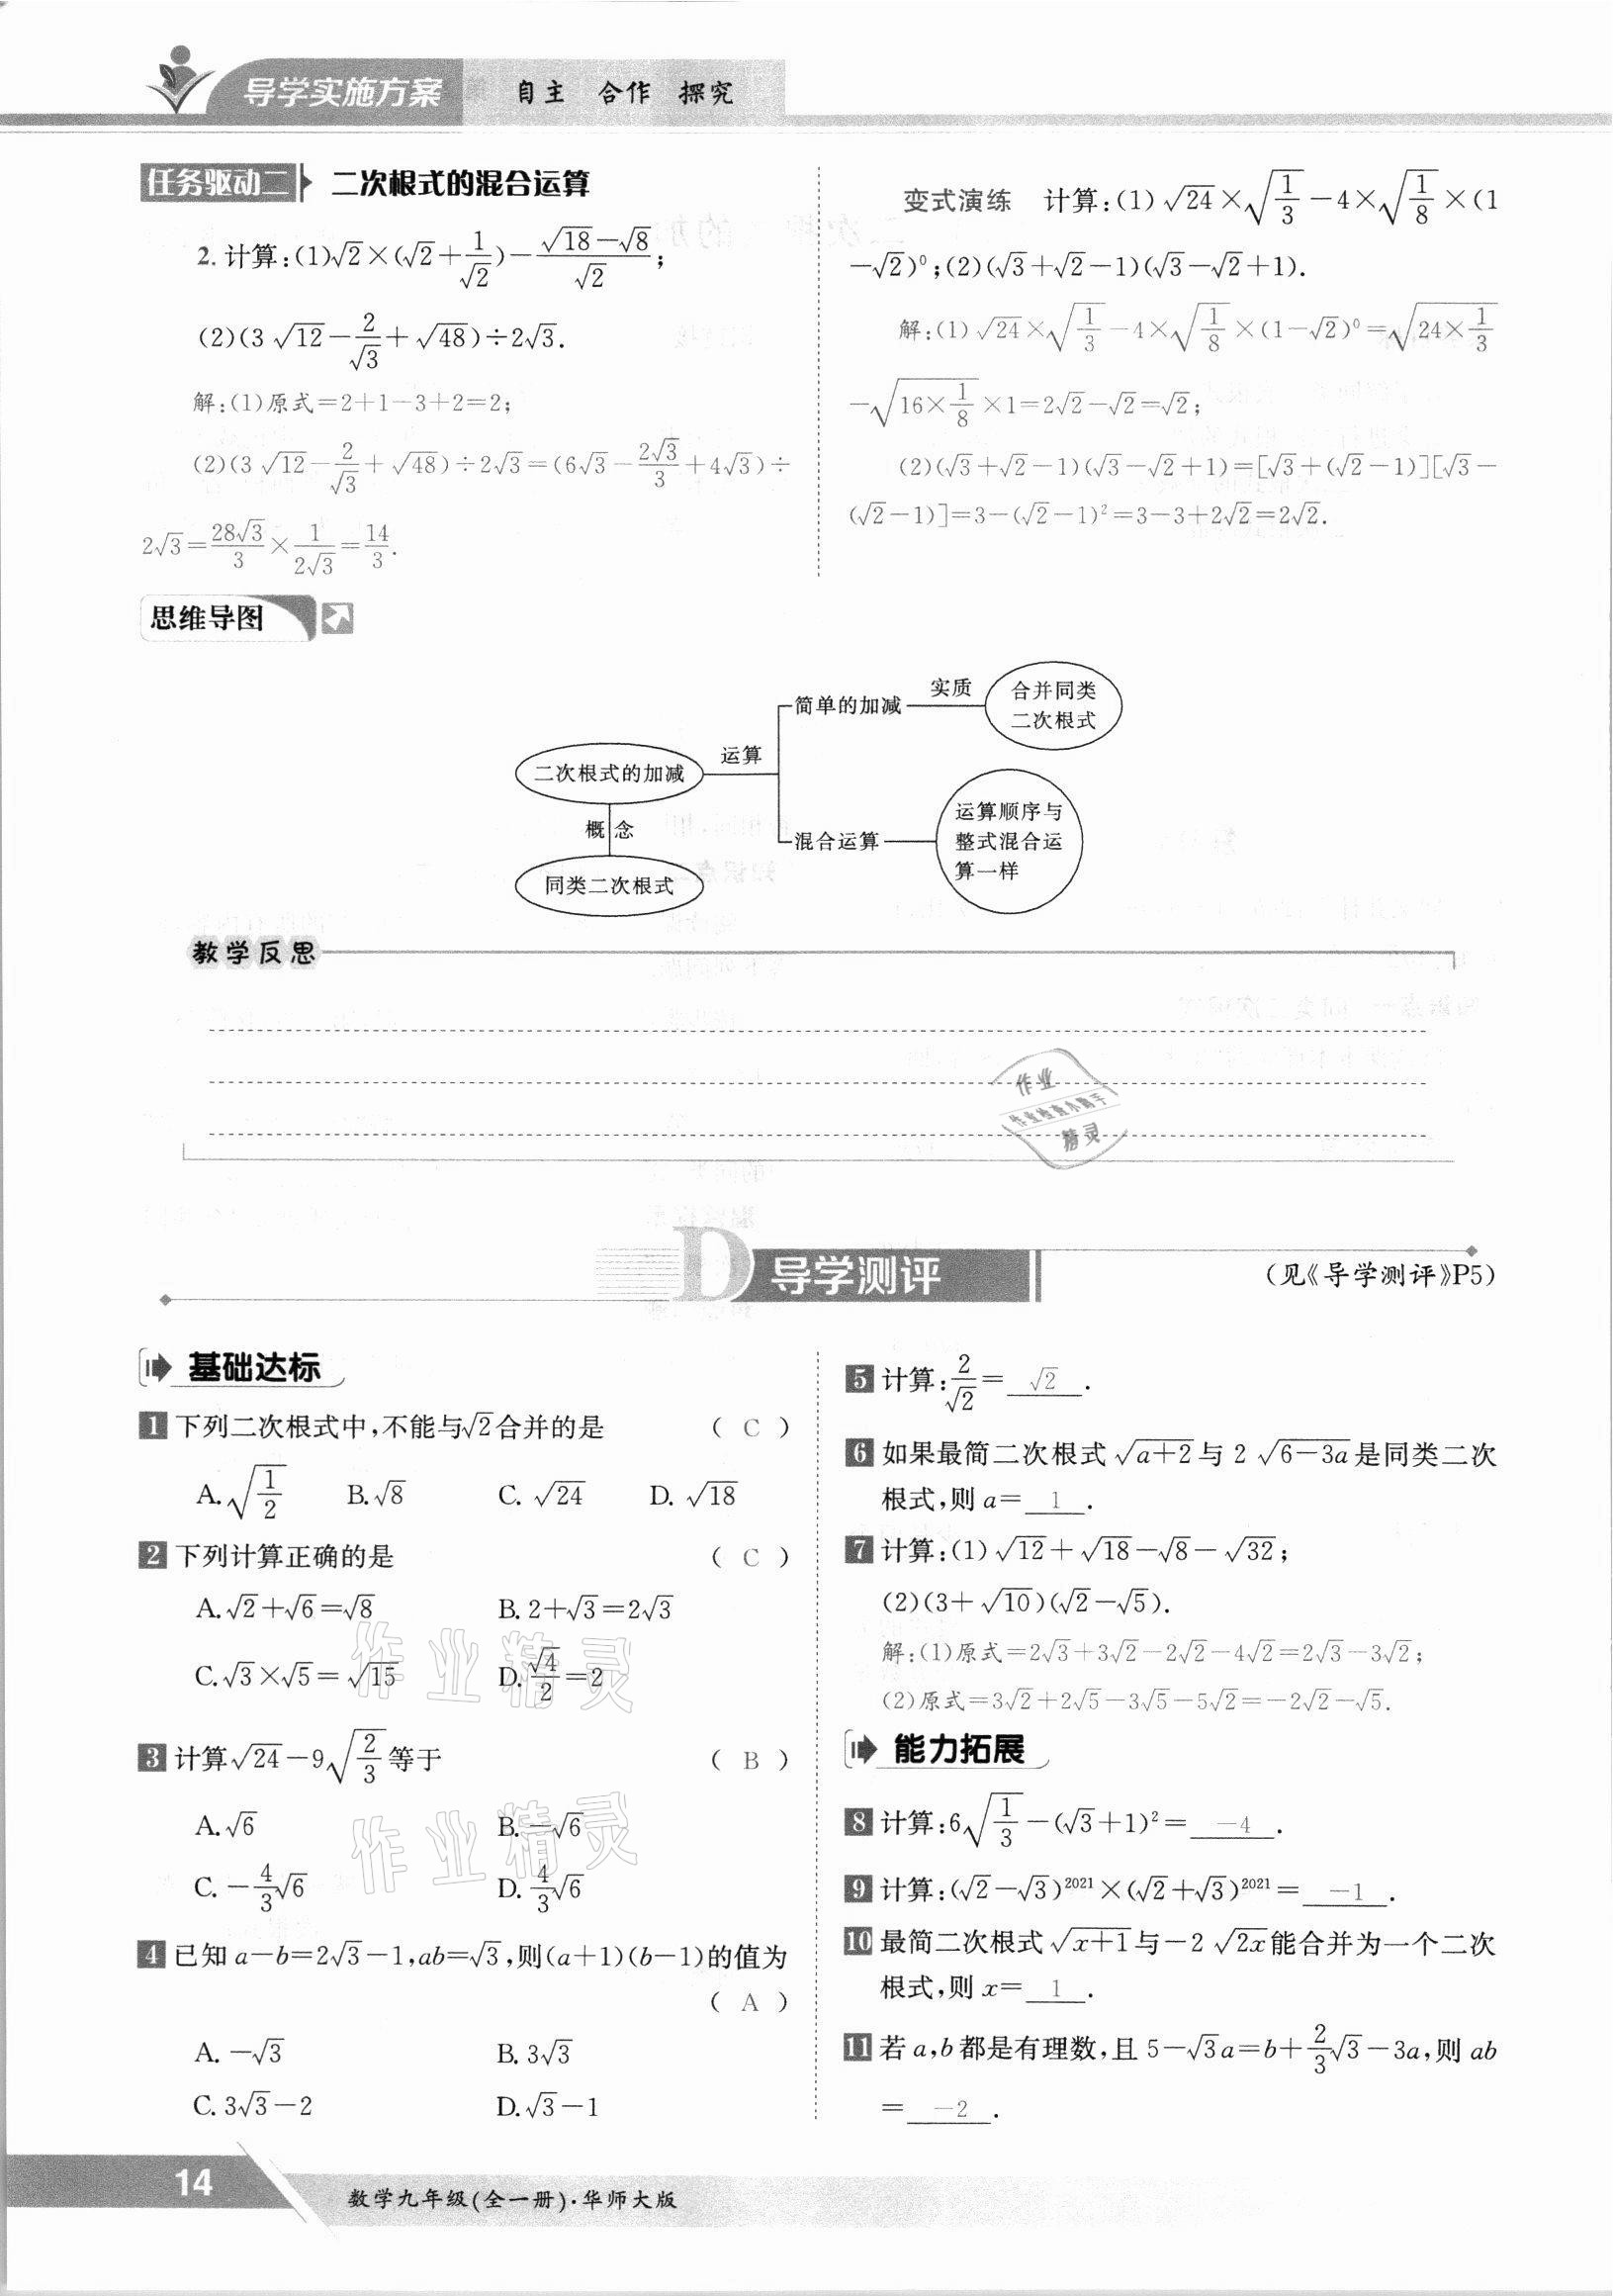 导学实施方案 自主 合作 探究
任务驱动二 二次根式的混合运算
2. 计算:(1)√2×(√2+1/√2)-(√18-√8)/√2;
(2)(3√12-2/√3+√48)÷2√3.
解:(1)原式=2+1-3+2=2;
(2)(3√12-2/√3+√48)÷2√3=(6√3-2√3/3+4√3)÷
2√3=28√3/3×1/2√3=14/3.
变式演练 计算:(1)√24×√(1/3)-4×√(1/8)×(1
-√2)⁰;(2)(√3+√2-1)(√3-√2+1).
解:(1)√24×√(1/3)-4×√(1/8)×(1-√2)⁰=√(24×1/3)
-√(16×1/8)×1=2√2-√2=√2;
(2)(√3+√2-1)(√3-√2+1)=[√3+(√2-1)][√3-
(√2-1)]=3-(√2-1)²=3-3+2√2=2√2.
思维导图
二次根式的加减
运算
概念
同类二次根式
简单的加减
实质
合并同类
二次根式
混合运算
运算顺序与
整式混合运
算一样
教学反思
作业
作业检查小助手
精灵
D 导学测评
(见《导学测评》P5)
基础达标
1 下列二次根式中,不能与√2合并的是 ( C )
A.√(1/2) B.√8 C.√24 D.√18
2 下列计算正确的是 ( C )
A.√2+√6=√8 B.2+√3=2√3
C.√3×√5=√15 D.√4/2=2
3 计算√24-9√(2/3)等于 ( B )
A.√6 B.-√6
C.-4/3√6 D.4/3√6
4 已知a-b=2√3-1,ab=√3,则(a+1)(b-1)的值为
( A )
A.-√3 B.3√3
C.3√3-2 D.√3-1
5 计算:2/√2=√2.
6 如果最简二次根式√(a+2)与2√(6-3a)是同类二次
根式,则a=1.
7 计算:(1)√12+√18-√8-√32;
(2)(3+√10)(√2-√5).
解:(1)原式=2√3+3√2-2√2-4√2=2√3-3√2;
(2)原式=3√2+2√5-3√5-5√2=-2√2-√5.
能力拓展
8 计算:6√(1/3)-(√3+1)²=-4.
9 计算:(√2-√3)²⁰²¹×(√2+√3)²⁰²¹=-1.
10 最简二次根式√(x+1)与-2√(2x)能合并为一个二次
根式,则x=1.
11 若a,b都是有理数,且5-√3a=b+2/3√3-3a,则ab
=-2.
作业精灵
作业精灵
14
数学九年级(全一册)·华师大版